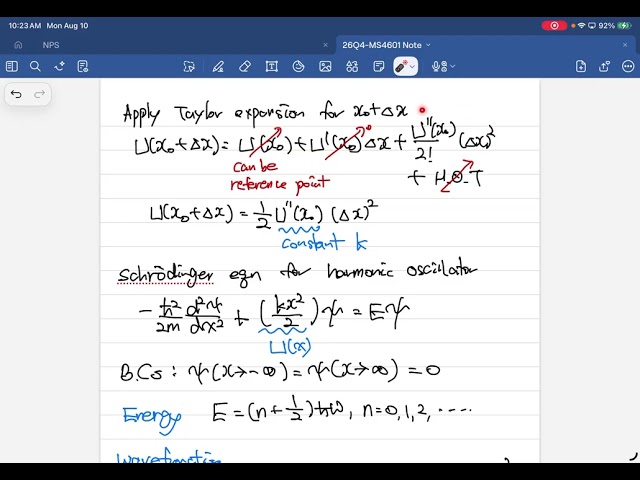 10:23 AM Mon Aug 10
92%
NPS
26Q4-MS4601 Note
Apply Taylor expansion for x₀+Δx
U(x₀+Δx) = U(x₀) + U'(x₀)Δx + U''(x₀)/2! (Δx)²
0
can be
reference point
+ H.O.T
U(x₀+Δx) = 1/2 U''(x₀) (Δx)²
constant k
Schrödinger eqn for harmonic oscillator
-ħ²/2m d²ψ/dx² + (kx²/2)ψ = Eψ
U(x)
B.Cs : ψ(x→-∞) = ψ(x→∞) = 0
Energy E = (n + 1/2)ħω, n=0,1,2, ....
Wavefunction